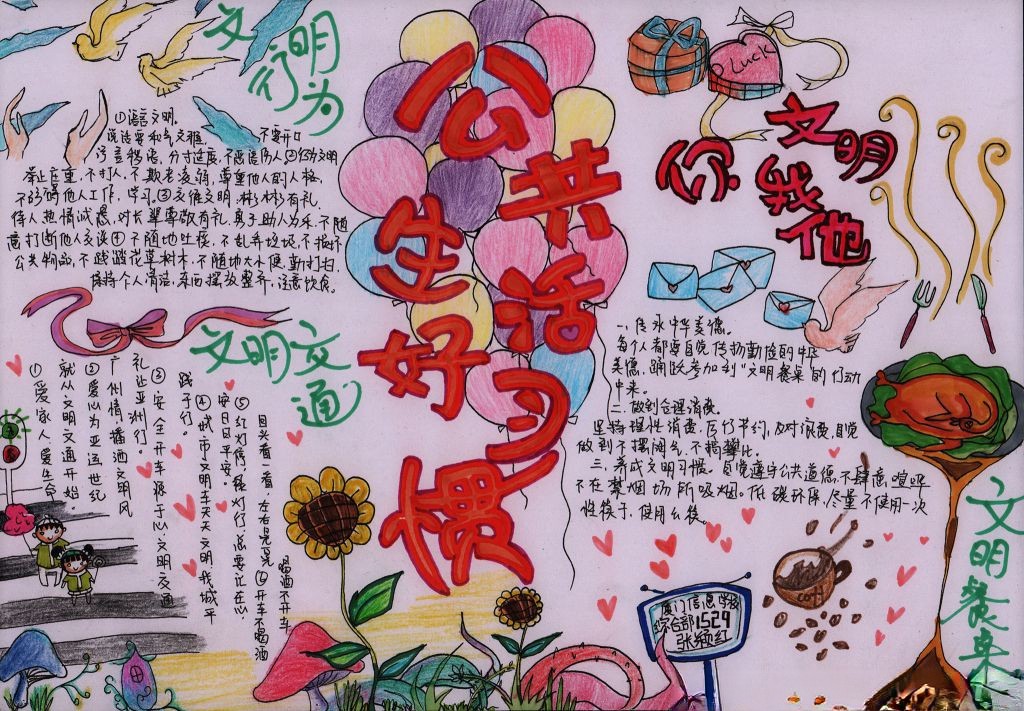 文明
行为
①语言文明。
说话要和气文雅，不要开口
污言秽语，分寸过度，不恶语伤人②行动文明
举止庄重，不打人，不欺老凌弱，尊重他人的人格，
不妨碍他人工作，学习③交往文明，彬彬有礼，
侍人热情诚恳，对长辈尊敬有礼，勇于助人为乐，不随
意打断他人交谈④不随地吐痰，不乱弃垃圾，不损坏
公共物品，不践踏花草树木，不随地大小便，勤打扫，
保持个人清洁，东西摆放整齐，注意饮食。
公共
生活
好习
惯
文明
你我他
Luck
一、传承中华美德。
每个人都要自觉传扬勤俭的中华
美德，踊跃参加到“文明餐桌的行动
中来。
二、做到合理消费。
坚持理性消费，厉行节约，反对浪费，自觉
做到不摆阔气，不搞攀比。
三、养成文明习惯。自觉遵守公共道德，不肆意喧哗
不在禁烟场所吸烟。低碳环保，尽量不使用一次
性筷子，使用公筷。
文明交通
①爱家人爱生命
就从文明交通开始
②爱心为亚运世纪
广州情播洒文明风
礼让亚洲行
③安全开车源于心文明交通
践于行。
④城市文明车天天文明我城平
安日日平安。
⑤红灯停绿灯行总要让在心
回头看一看，左右是先⑥开车不喝酒
喝酒不开车
文明餐桌
厦门信息学校
综合部1529
张颖红